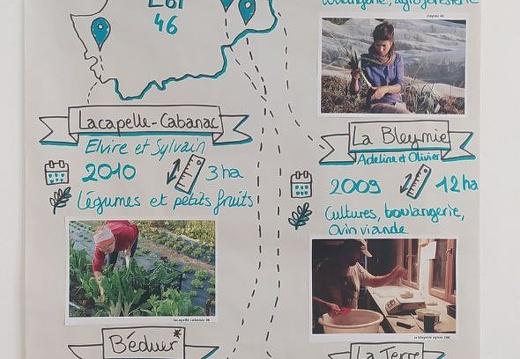 Lot
46
boulangerie, agroforesterie
Lacapelle-Cabanac
Elvire et Sylvain
2010
3 ha
Légumes et petits fruits
lacapelle cabanac 46
Béduer*
La Bleynie
Adeline et Olivier
2009
12 ha
Cultures, boulangerie,
Ovin viande
La Terre